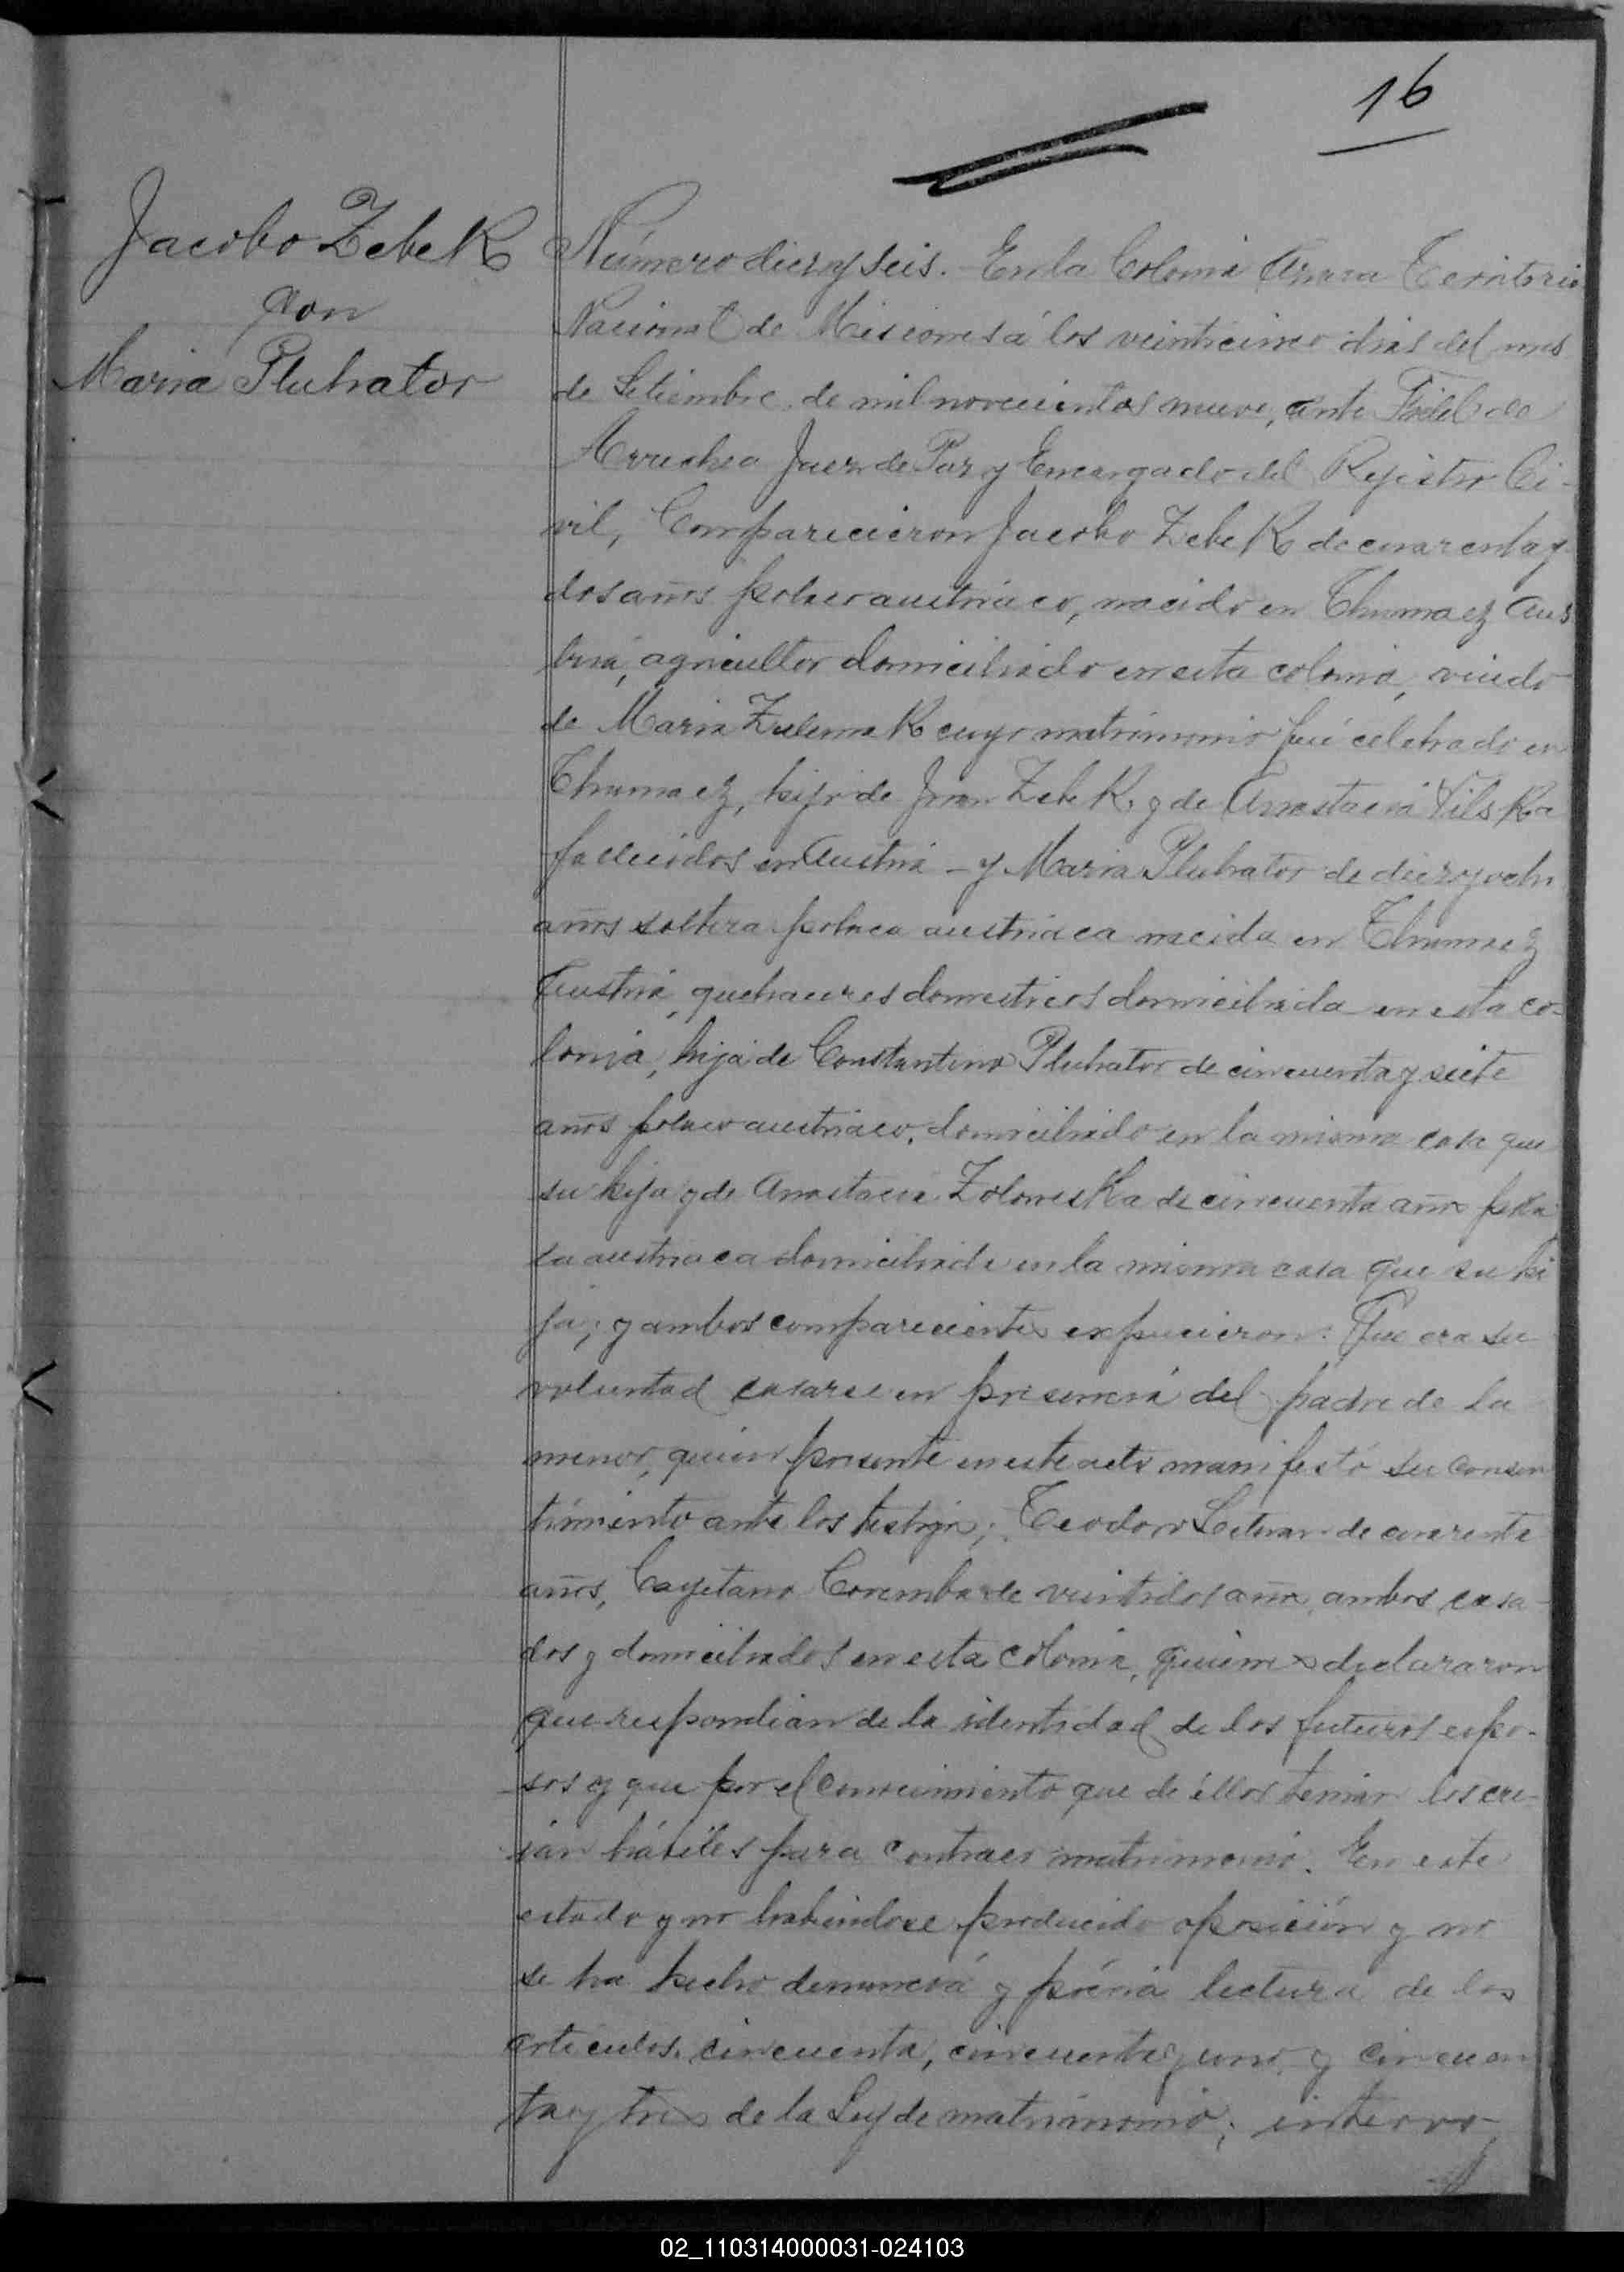 16
Jacobo Zebek
con
Maria Pluhator
Número diez y seis. En la Colonia Azara Territorio
Nacional de Misiones á los veinticinco dias del mes
de Setiembre de mil novecientos nueve, ante Fidel de
Arrechea Juez de Paz y Encargado del Rejistro Ci-
vil, Comparecieron Jacobo Zebek de cuarenta y
dos años polaco austriaco, nacido en Thumacz Aus
tria, agricultor domiciliado en esta colonia, viudo
de Maria Zulemak cuyo matrimonio fué celebrado en
Thumacz, hijo de Juan Zebek y de Anastacia Vilska
fallecidos en Austria - y Maria Pluhator de diez y ocho
años soltera polaca austriaca nacida en Thumacz
Austria, quehaceres domesticos domiciliada en esta co-
lonia, hija de Constantino Pluhator de cincuenta y siete
años polaco austriaco, domiciliado en la misma casa que
su hija y de Anastacia Zoloneska de cincuenta años pola
ca austriaca domiciliada en la misma casa que su hi
ja; y ambos comparecientes expucieron: Que era su
voluntad casarse en presencia del padre de la
menor, quien presente en este acto manifestó su consen
timiento ante los testigos; Teodoro de cuarenta
años, Cayetano Coremba de veintidos años, ambos casa-
dos y domiciliados en esta colonia, quienes declararon
que respondian de la identidad de los futuros espo-
sos y que por el conocimiento que de éllos tenian los cre-
ian hábiles para contraer matrimonio. En este
estado y no habiendose producido oposición y no
se ha hecho denuncia y prévia lectura de los
articulos cincuenta, cincuenta y uno y cincuen
ta y tres de la Ley de matrimonio; interro-
02_110314000031-024103